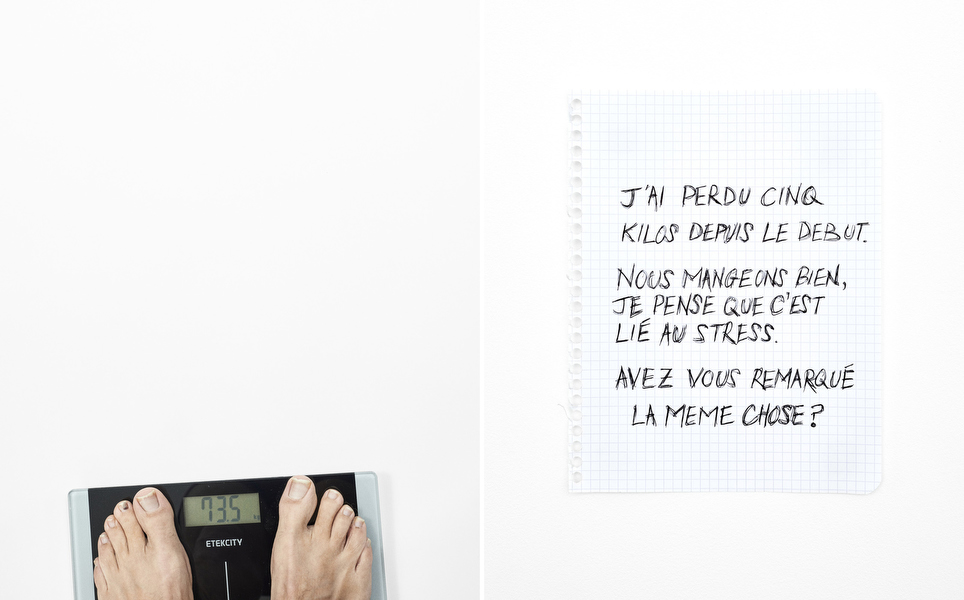 73.5
ETEKCITY
J'AI PERDU CINQ
KILOS DEPUIS LE DEBUT.
NOUS MANGEONS BIEN,
JE PENSE QUE C'EST
LIÉ AU STRESS.
AVEZ VOUS REMARQUÉ
LA MEME CHOSE?